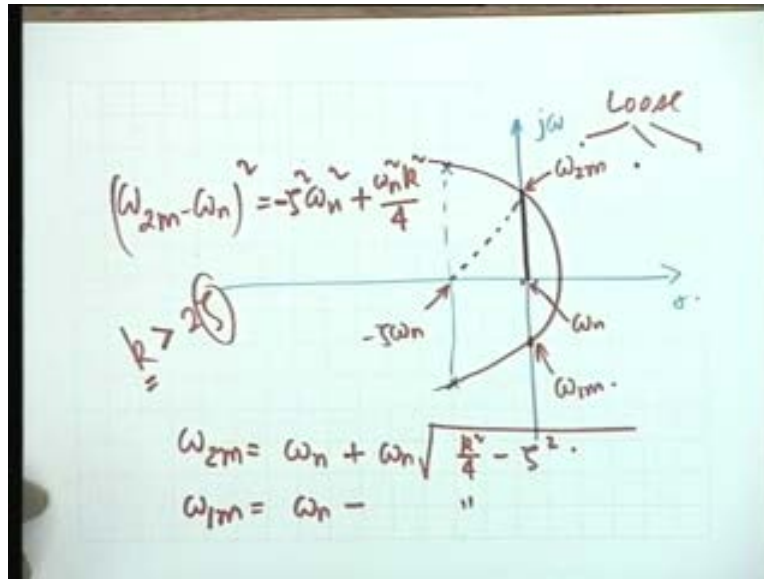 Loose
jω
ω₂ₘ
(ω₂ₘ-ωₙ)² = -ζ²ωₙ² + ωₙ²k²/4
σ.
k > 2ζ
-ζωₙ
ωₙ
ω₁ₘ.
ω₂ₘ = ωₙ + ωₙ√(k²/4 - ζ²).
ω₁ₘ = ωₙ - "